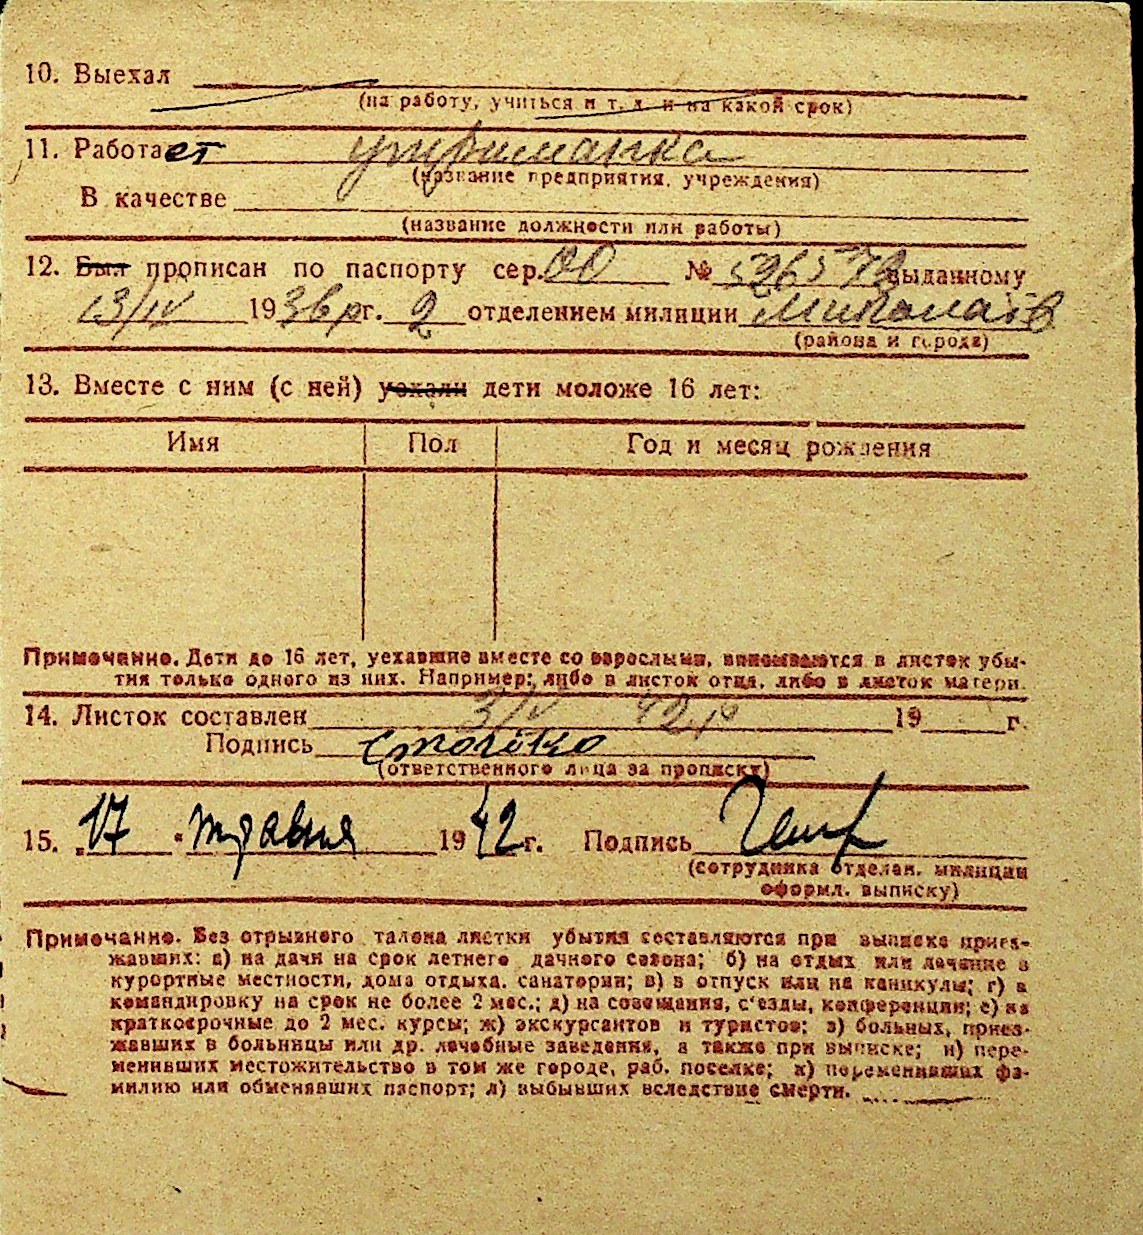 10. Выехал
(на работу, учиться и т. д. и на какой срок)
11. Работает утриманка
(название предприятия, учреждения)
В качестве
(название должности или работы)
12. Был прописан по паспорту сер. 00 № 526573 выданному
13/IV 1936 р г. 2 отделением милиции Миколаїв
(района и города)
13. Вместе с ним (с ней) уехали дети моложе 16 лет:
Имя Пол Год и месяц рождения
Примечание. Дети до 16 лет, уехавшие вместе со взрослыми, вписываются в листок убы-
тия только одного из них. Например: либо в листок отца, либо в листок матери.
14. Листок составлен 3/V 42 р 19 г.
Подпись
(ответственного лица за прописку)
15. „17 “ травня 1942 г. Подпись
(сотрудника отделен. милиции
оформл. выписку)
Примечание. Без отрывного талона листки убытия составляются при выписке приез-
жавших: а) на дачи на срок летнего дачного сезона; б) на отдых или лечение в
курортные местности, дома отдыха, санатории; в) в отпуск или на каникулы; г) в
командировку на срок не более 2 мес.; д) на совещания, с'езды, конференции; е) на
краткосрочные до 2 мес. курсы; ж) экскурсантов и туристов; з) больных, приез-
жавших в больницы или др. лечебные заведения, а также при выписке; и) пере-
менивших местожительство в том же городе, раб. поселке; к) переменивших фа-
милию или обменявших паспорт; л) выбывших вследствие смерти.